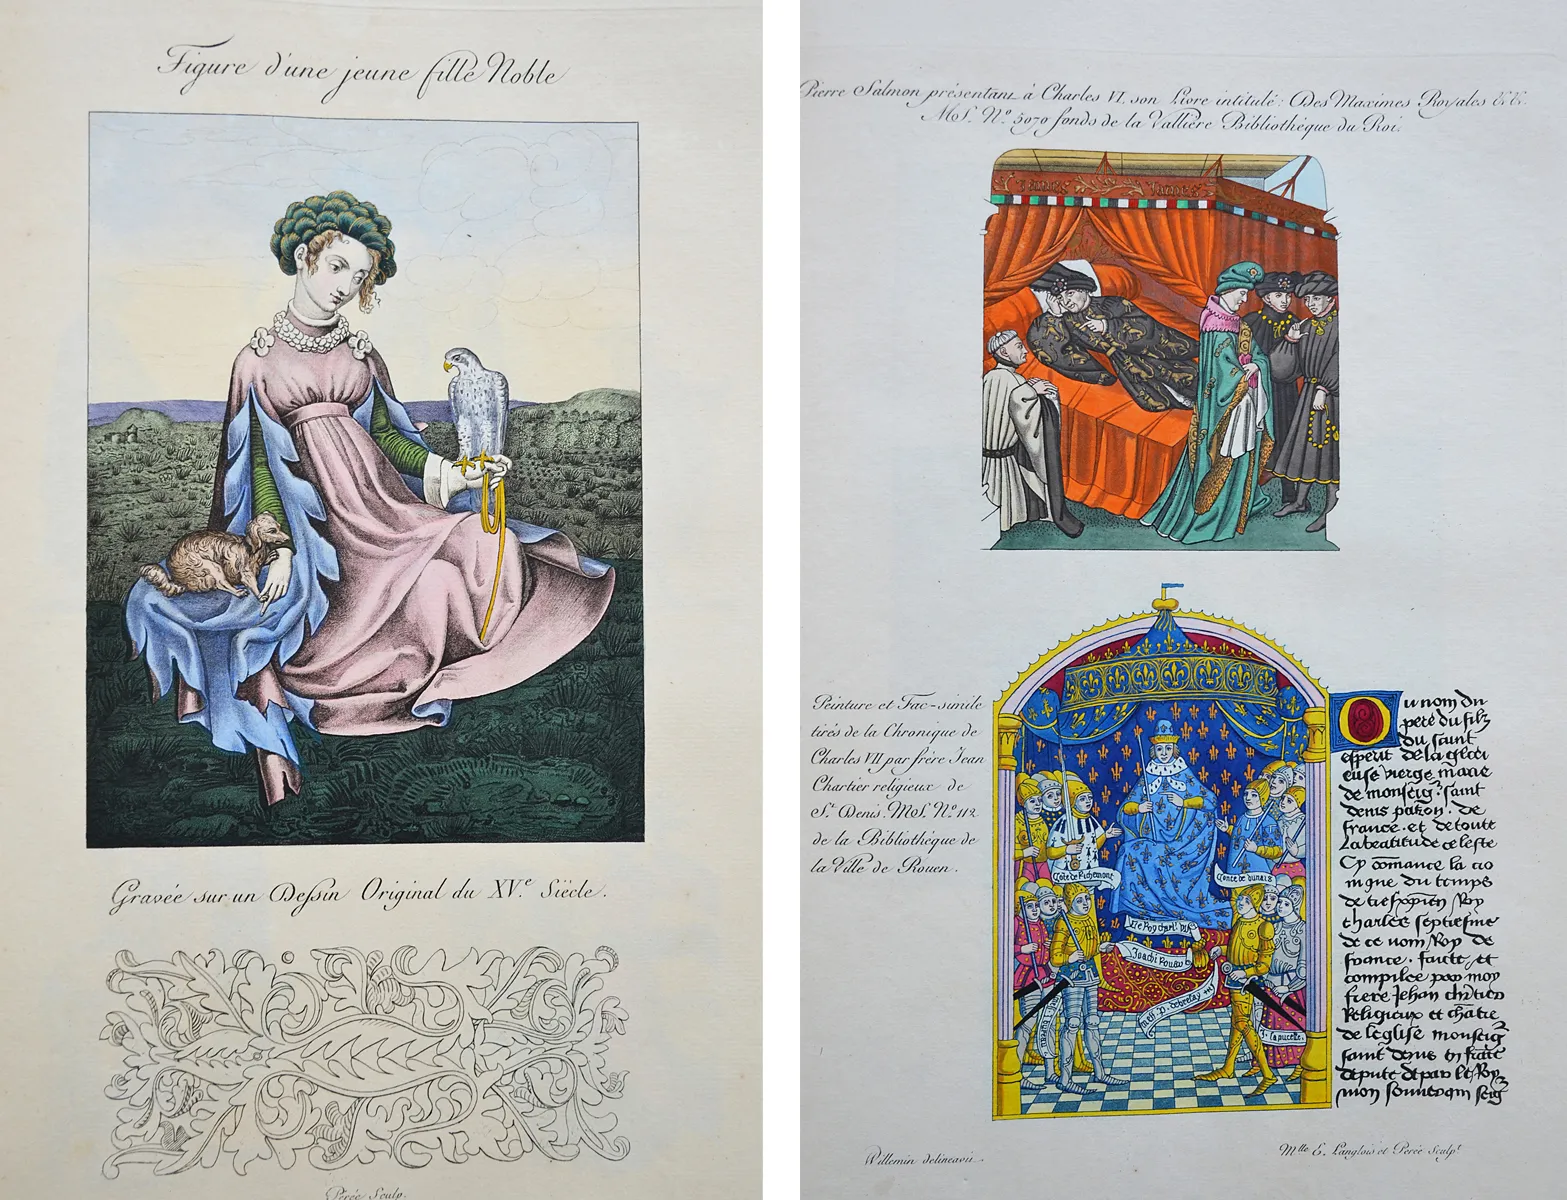 Figure d'une jeune fille Noble
Gravée sur un Dessin Original du XV.e Siècle.
Pérée Sculp.
Pierre Salmon présentant à Charles VI. son Livre intitulé: Des Maximes Royales &&.
MS. N.o 5070 fonds de la Vallière Bibliothèque du Roi.
Peinture et Fac-simile
tirés de la Chronique de
Charles VII par frère Jean
Chartier religieux de
S.t Denis. MS. N.o 112
de la Bibliothèque de
la Ville de Rouen.
Cōte de Richemont
Conte de dunais
la pucelle
Ou nom du
pere du filz
du saint
esperit de la glori
euse vierge marie
de monseigr saint
denis patron. de
france. et de toute
la beatitude celeste
Cy cōmance la cro
nique du temps
de tresxpien Roy
charles septiesme
de ce nom Roy de
france. faicte et
compilee par moy
frere Jehan chrtier
Religieux et chātre
de leglise monseigr
saint denis en france
depute de par le Roy
mon souverain seigr
Willemin delineavit.
Mlle E. Langlois et Pérée Sculpt